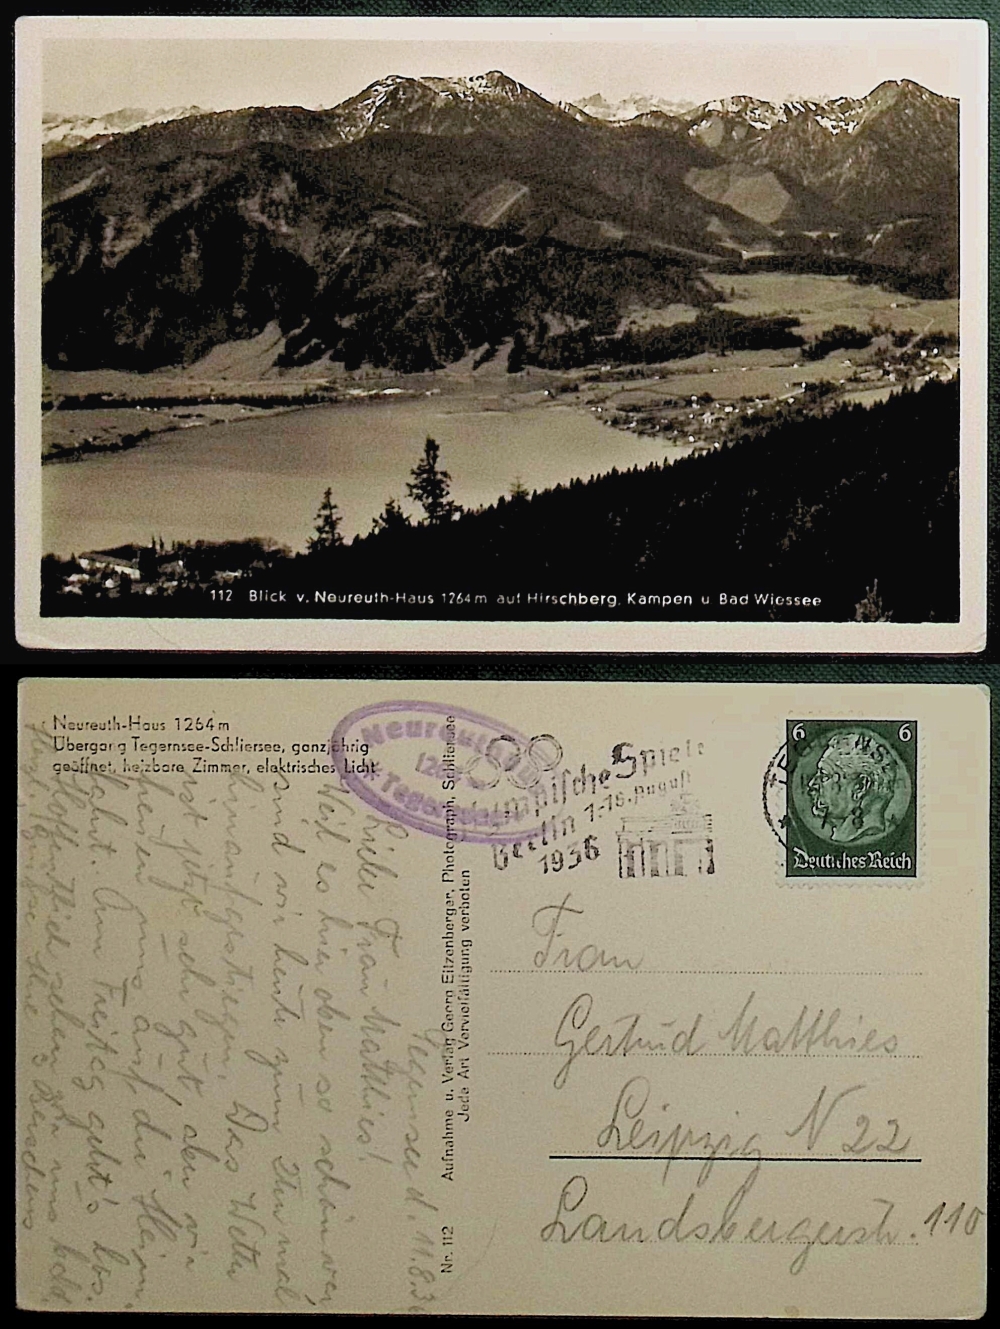 112 Blick v. Neureuth-Haus 1264m auf Hirschberg, Kampen u Bad Wiessee
Neureuth-Haus 1264m
Übergang Tegernsee-Schliersee, ganzjährig
geöffnet, heizbare Zimmer, elektrisches Licht
Neureuth
Tegernsee
Olympische Spiele
Berlin 1.-16. August
1936
6 6
Deutsches Reich
Tegernsee d. 11.8.36
Liebe Frau Matthies!
Weil es hier oben so schön war,
sind wir heute zum 2ten mal
hinaufgestiegen. Das Wetter
ist jetzt sehr gut aber wir
freuen uns auf die Heim-
fahrt. Am Freitag geht's los.
Hoffentlich sehen wir uns bald.
Herzl. Grüsse Ihre
Nr. 112 Aufnahme u. Verlag Georg Eitzenberger, Photograph, Schliersee
Jede Art Vervielfältigung verboten
Frau
Gertrud Matthies
Leipzig N 22
Landsbergerstr. 110